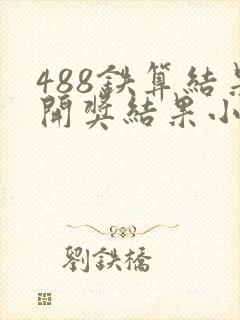 488鉄算結果
開奬結果小
劉鉄橋